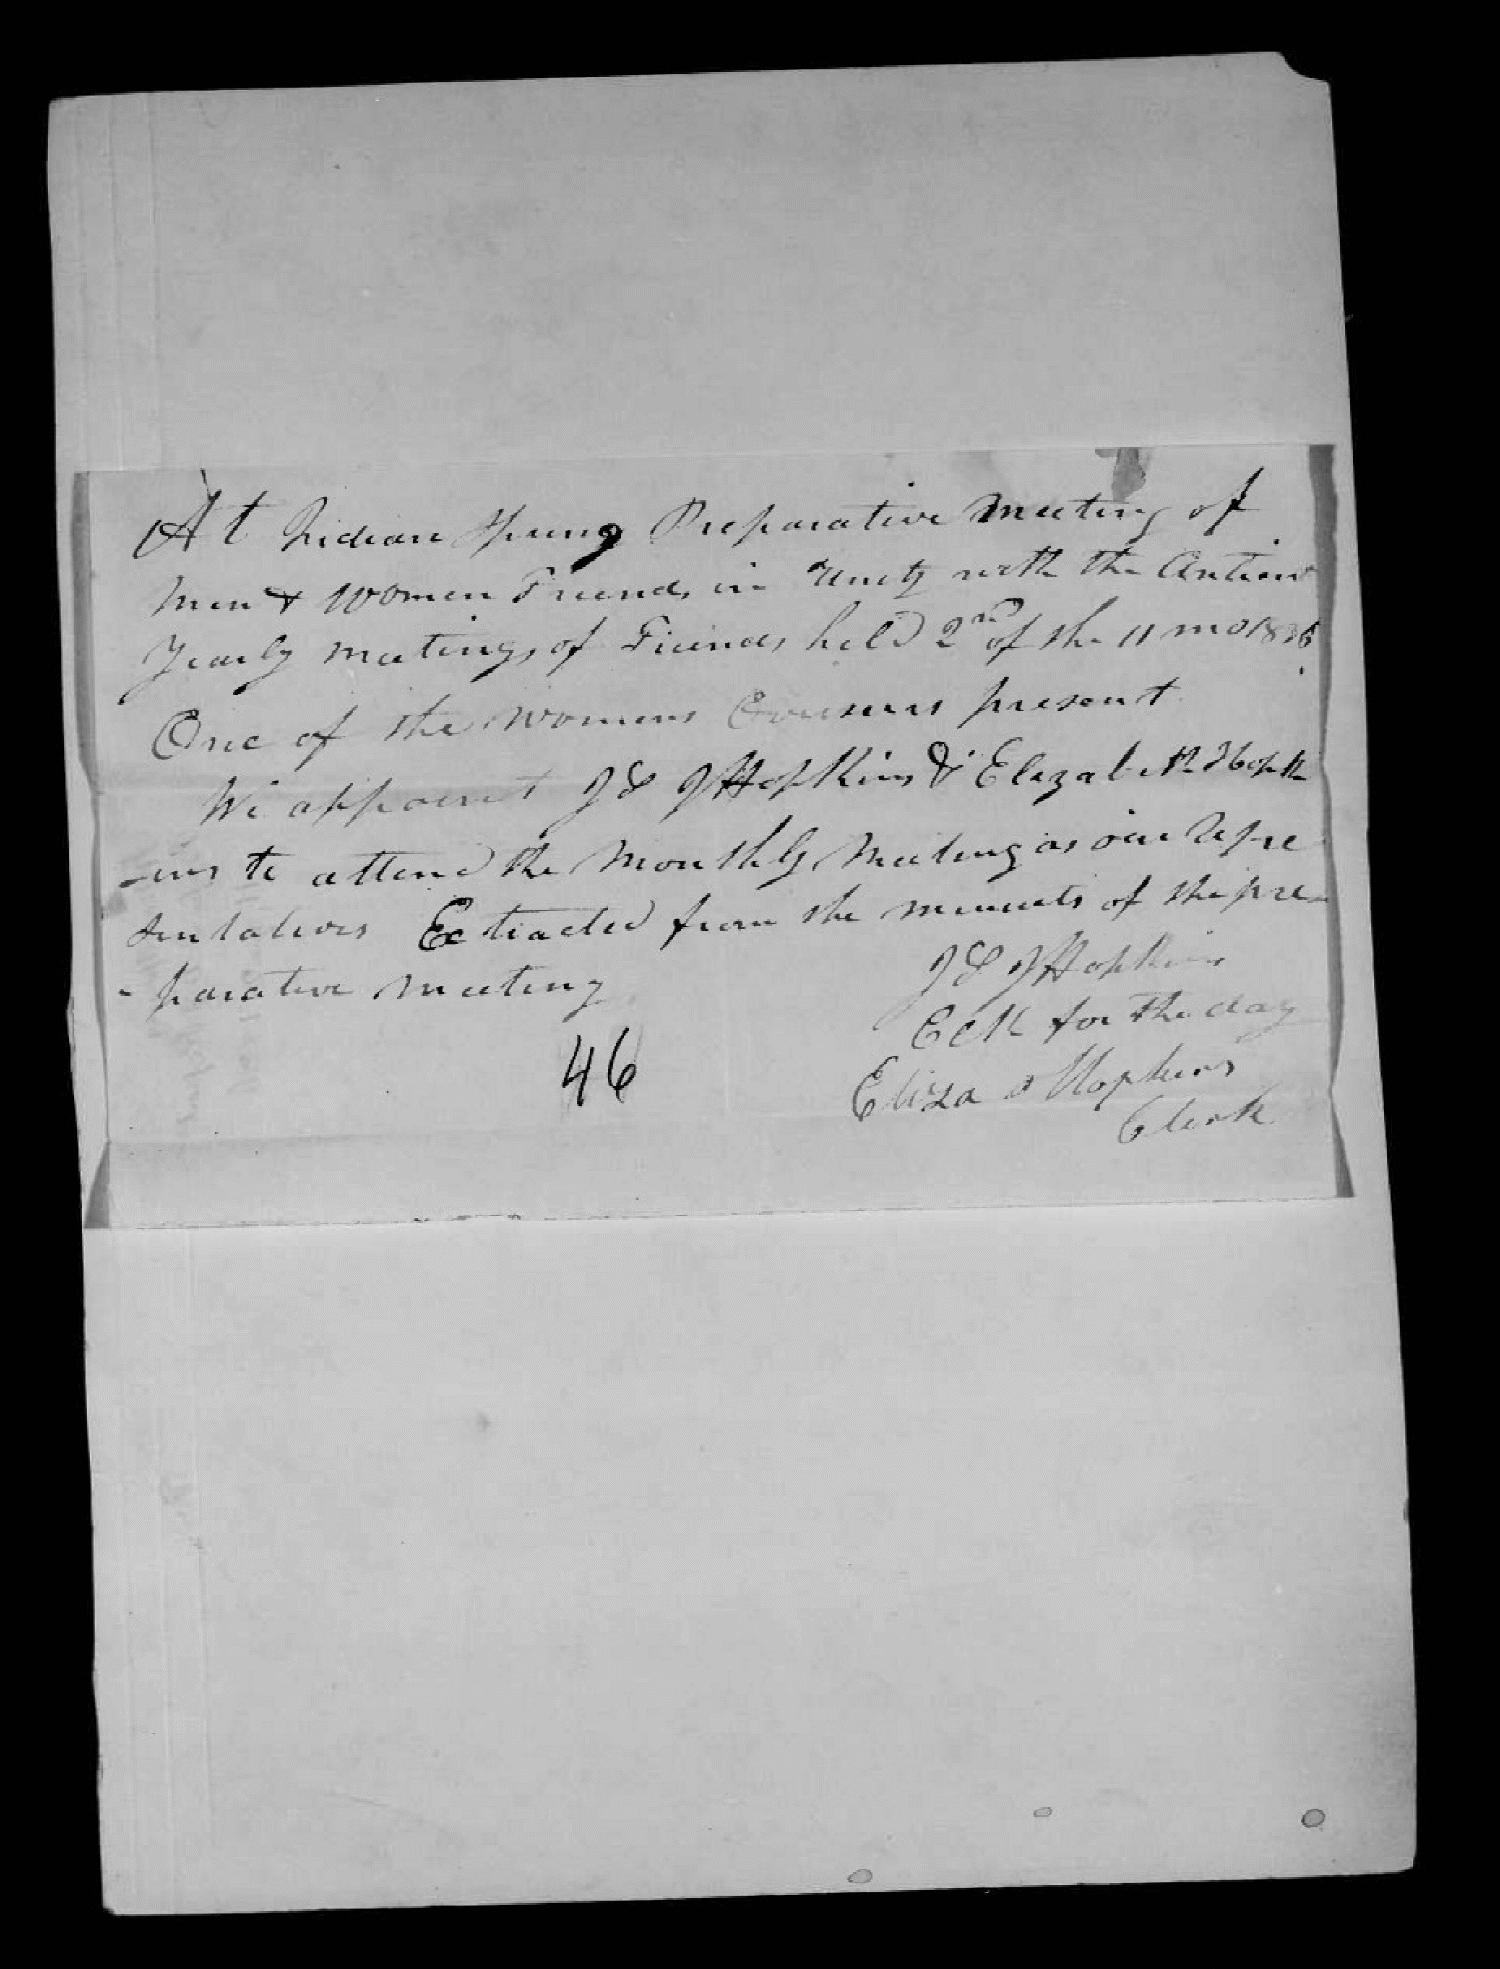 At Indian Spring Preparative meeting of
Men & Women Friends in Unity with the Antient
Yearly meeting, of Friends held 2nd of the 11 mo 1836
One of the womens Overseers present
We appoint J & J Hopkins & Elizabeth Hopk
-ins to attend the Monthly Meeting as our repre
sentatives Extracted from the minuets of the pre-
-parative meeting
J & J Hopkins
Eclk for the day
Eliza Hopkins
Clerk
46